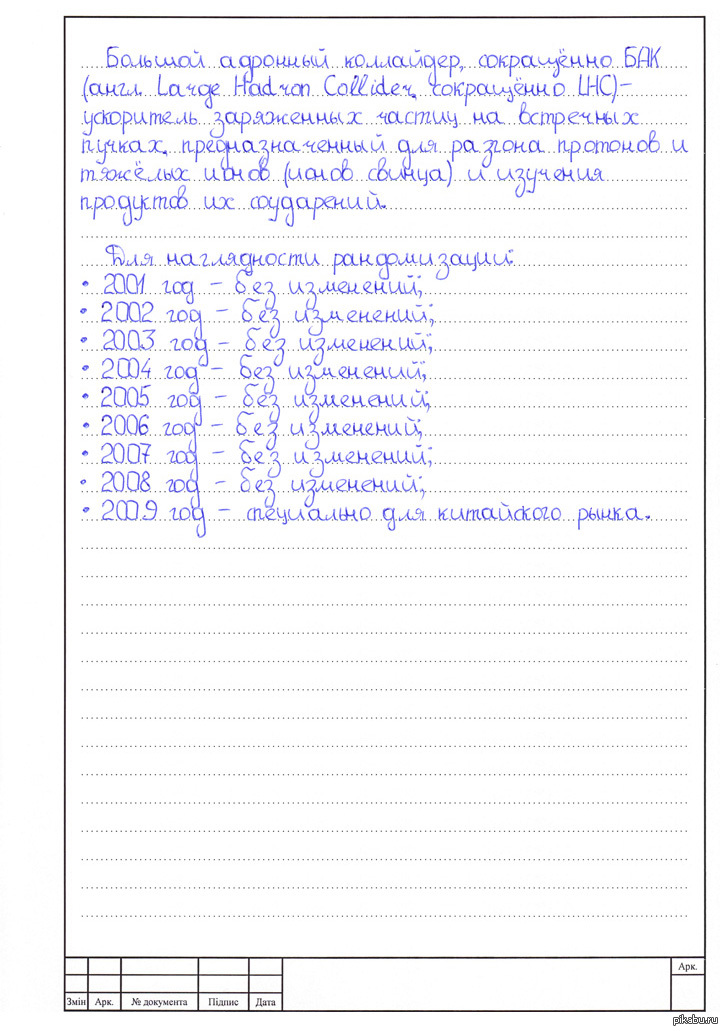 Большой адронный коллайдер, сокращённо БАК
(англ. Large Hadron Collider, сокращённо LHC) –
ускоритель заряженных частиц на встречных
пучках, предназначенный для разгона протонов и
тяжёлых ионов (ионов свинца) и изучения
продуктов их соударений.
Для наглядности рандомизации:
• 2001 год – без изменений;
• 2002 год – без изменений;
• 2003 год – без изменений;
• 2004 год – без изменений;
• 2005 год – без изменений;
• 2006 год – без изменений;
• 2007 год – без изменений;
• 2008 год – без изменений;
• 2009 год – специально для китайского рынка.
Арк.
Змін Арк. № документа Підпис Дата
pikabu.ru